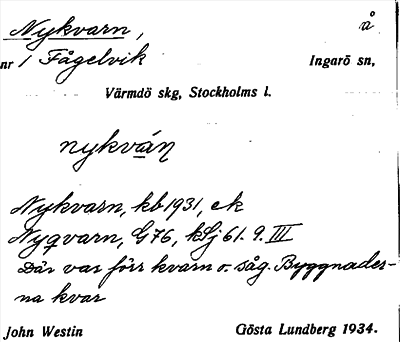 Nykvarn, å
nr 1 Fågelvik Ingarö sn,
Värmdö skg, Stockholms l.
nykván
Nykvarn, kb 1931, ek
Nyqvarn, G76, kSj 61. 9. III
Där var förr kvarn o. såg. Byggnader-
na kvar
John Westin Gösta Lundberg 1934.